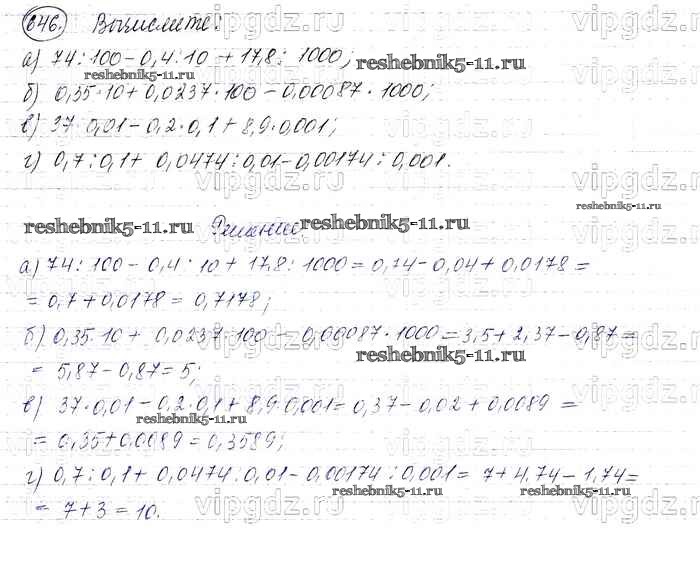 846. Вычислите:
а) 74 : 100 - 0,4 : 10 + 17,8 : 1000;
reshebnik5-11.ru reshebnik5-11.ru
б) 0,35 · 10 + 0,0237 · 100 - 0,00087 · 1000;
в) 37 · 0,01 - 0,2 · 0,1 + 8,9 · 0,001;
г) 0,7 : 0,1 + 0,0474 : 0,01 - 0,00174 : 0,001.
reshebnik5-11.ru
reshebnik5-11.ru Решение reshebnik5-11.ru
а) 74 : 100 - 0,4 : 10 + 17,8 : 1000 = 0,74 - 0,04 + 0,0178 =
= 0,7 + 0,0178 = 0,7178;
б) 0,35 · 10 + 0,0237 · 100 - 0,00087 · 1000 = 3,5 + 2,37 - 0,87 =
reshebnik5-11.ru
= 5,87 - 0,87 = 5;
в) 37 · 0,01 - 0,2 · 0,1 + 8,9 · 0,001 = 0,37 - 0,02 + 0,0089 =
reshebnik5-11.ru
= 0,35 + 0,0089 = 0,3589;
г) 0,7 : 0,1 + 0,0474 : 0,01 - 0,00174 : 0,001 = 7 + 4,74 - 1,74 =
reshebnik5-11.ru reshebnik5-11.ru
= 7 + 3 = 10.
vipgdz.ru